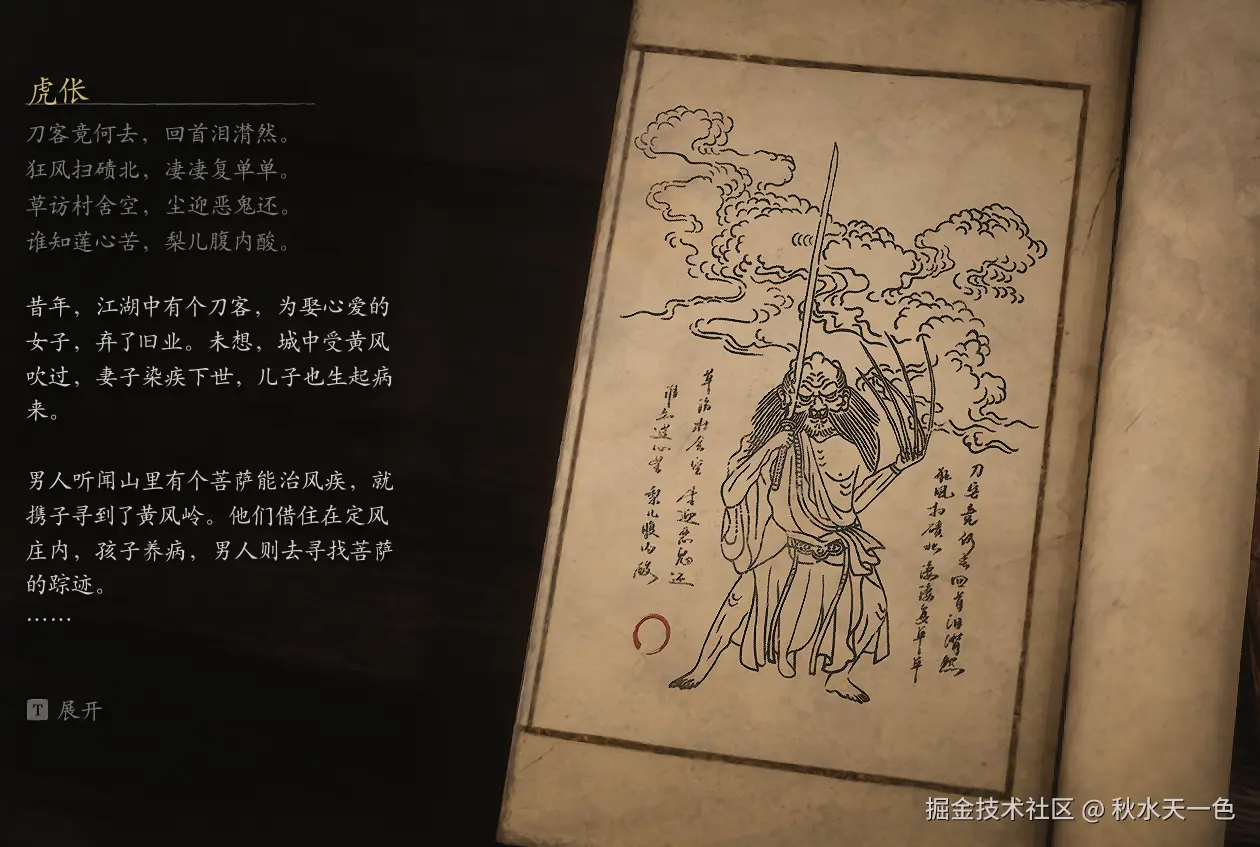 虎伥
刀客竟何去，回首泪潸然。
狂风扫碛北，凄凄复单单。
草访村舍空，尘迎恶鬼还。
谁知莲心苦，梨儿腹内酸。
昔年，江湖中有个刀客，为娶心爱的
女子，弃了旧业。未想，城中受黄风
吹过，妻子染疾下世，儿子也生起病
来。
男人听闻山里有个菩萨能治风疾，就
携子寻到了黄风岭。他们借住在定风
庄内，孩子养病，男人则去寻找菩萨
的踪迹。
……
T 展开
刀客竟何去回首泪潸然
狂风扫碛北凄凄复单单
草访村舍空尘迎恶鬼还
谁知莲心苦梨儿腹内酸
掘金技术社区 @ 秋水天一色